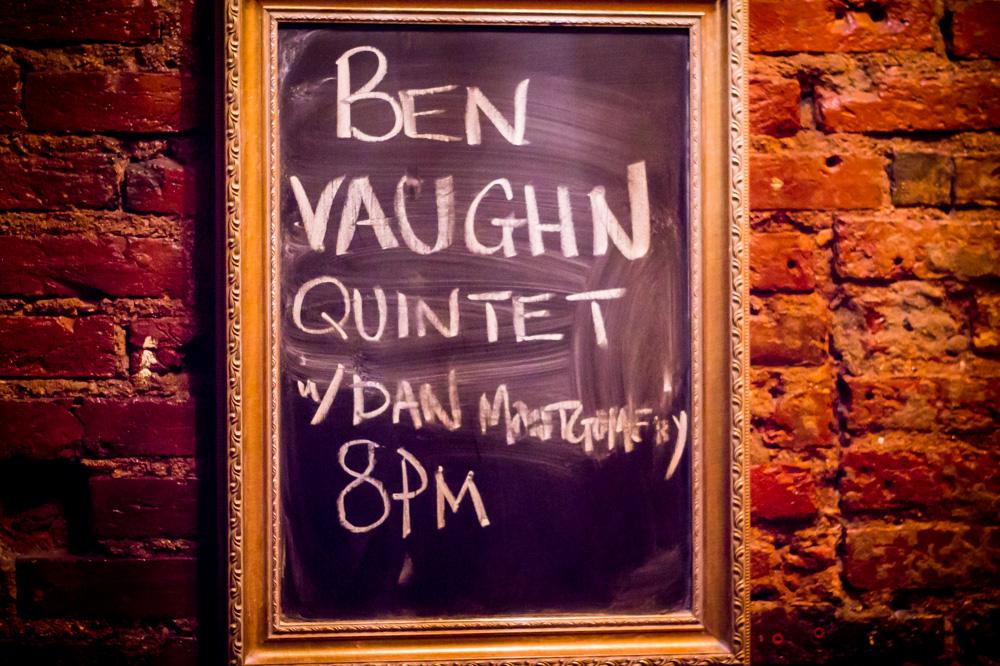 BEN
VAUGHN
QUINTET
w/ DAN MONTGOMERY
8PM